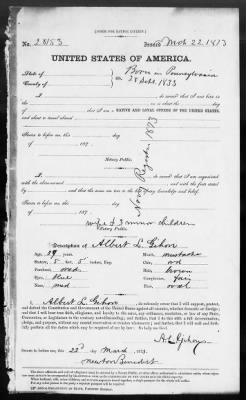 [FORM FOR NATIVE CITIZEN.]
No. 28153 Issued Mch 22. 1873
UNITED STATES OF AMERICA.
State of Born in Pennsylvania
County of 28 Sept. 1833
I do swear that I was born in
on or about the day
that I am a NATIVE AND LOYAL CITIZEN OF THE UNITED STATES,
and about to travel abroad
Sworn to before me, this day
of 187
Notary Public.
I am acquainted
with the above-named and with the facts stated
by and the same are true to the best of my knowledge and belief.
Sworn to before me, this day
of 187
wife & 3 minor children
Notary Public.
Description of Albert L. Gihon
Age, 39 years. Mouth, moustache
Stature, 5 feet, 5 inches, Eng. Chin,
Forehead, Hair, brown
Eyes, blue Complexion,
Nose, Face, oval
I, Albert L. Gihon do solemnly swear that I will support, protect,
and defend the Constitution and Government of the United States against all enemies, whether domestic or foreign;
and that I will bear true faith, allegiance, and loyalty to the same, any ordinance, resolution, or law of any State,
Convention, or Legislature to the contrary notwithstanding; and further, that I do this with a full determination,
pledge, and purpose, without any mental reservation or evasion whatsoever; and further, that I will well and faithfully
perform all the duties which may be required of me by law: So help me God.
Sworn to before me, this 22d day March 1873.
Newton Benedict